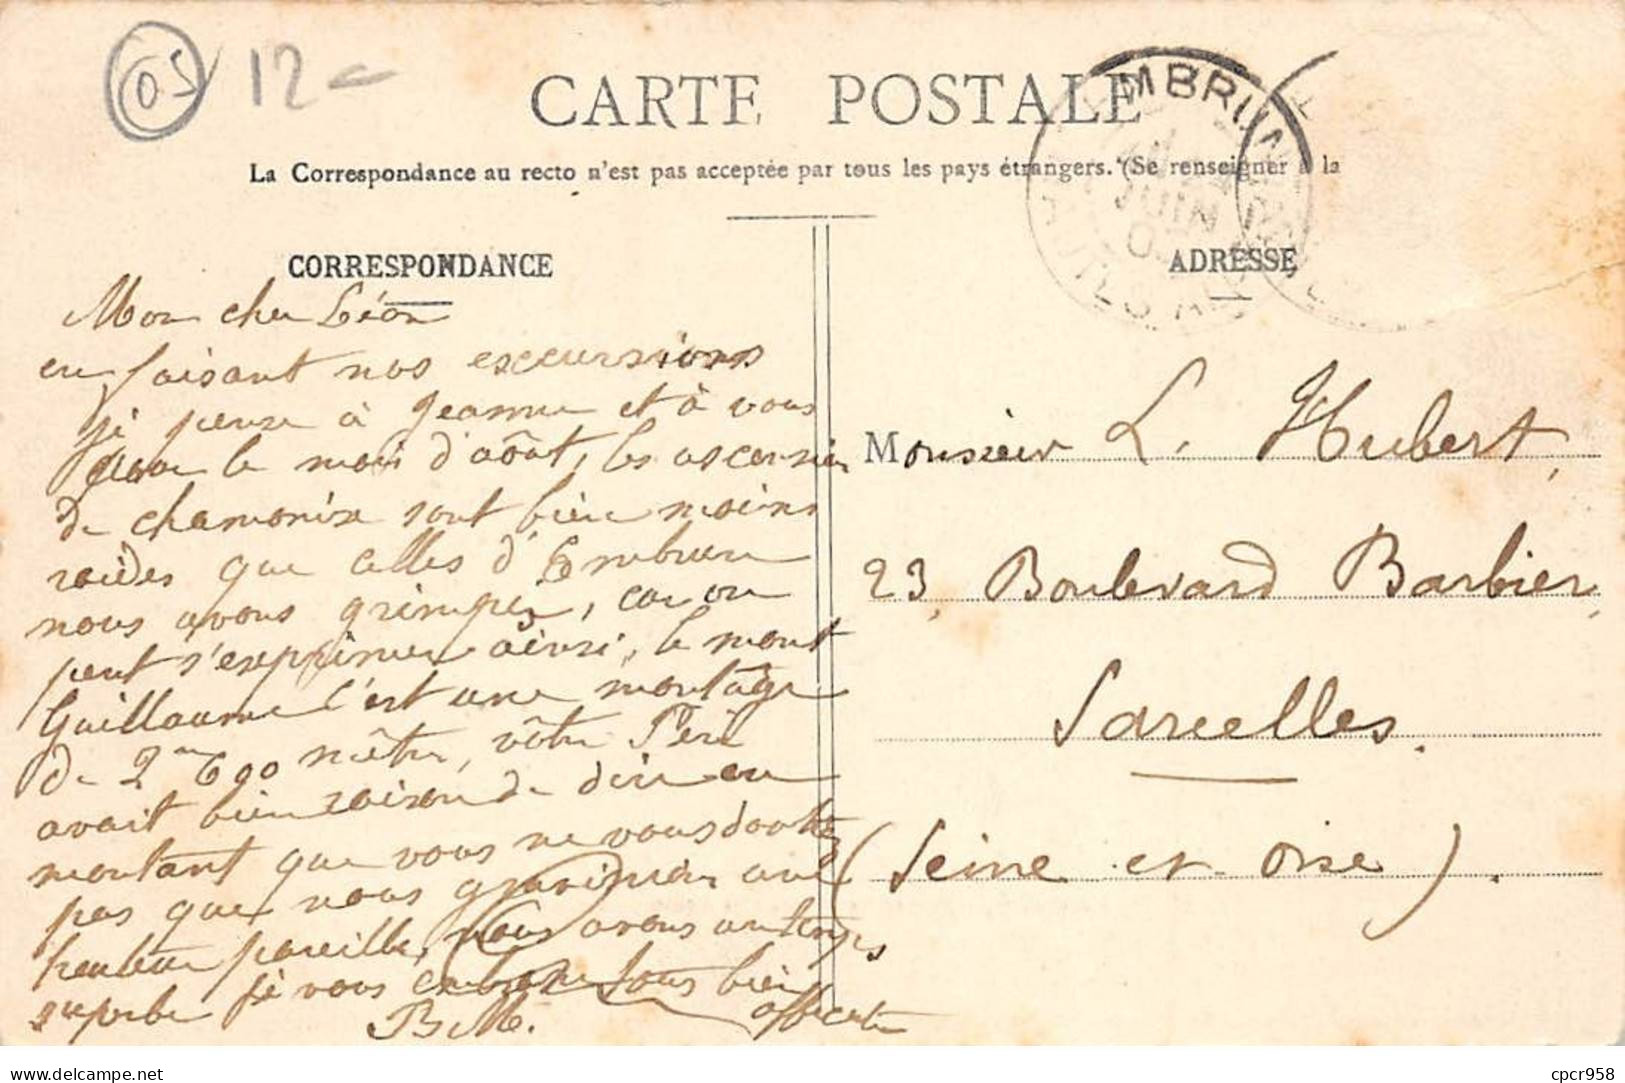 05 12-
CARTE POSTALE
La Correspondance au recto n'est pas acceptée par tous les pays étrangers. (Se renseigner à la
EMBRUN
JUIN
HAUTES AL
CORRESPONDANCE
ADRESSE
Mon cher Léon
en faisant nos excursions
je pense à Jeanne et à vous
pour le mois d'août, les ascensions
de chamonix sont bien moins
raides que celles d'Embrun
nous avons grimpés, car on
peut s'exprimer ainsi, le mont
Guillaume c'est une montagne
de 2m690 mètre, vôtre Père
avait bien raison de dire en
montant que vous ne vous doutez
pas que nous gravission une
hauteur pareille, nous avons un temps
superbe je vous embrasse tous bien
affectu
B M.
Monsieur L. Hubert,
23, Boulevard Barbier,
Sarcelles.
(Seine et Oise).
www.delcampe.net
cpcr958